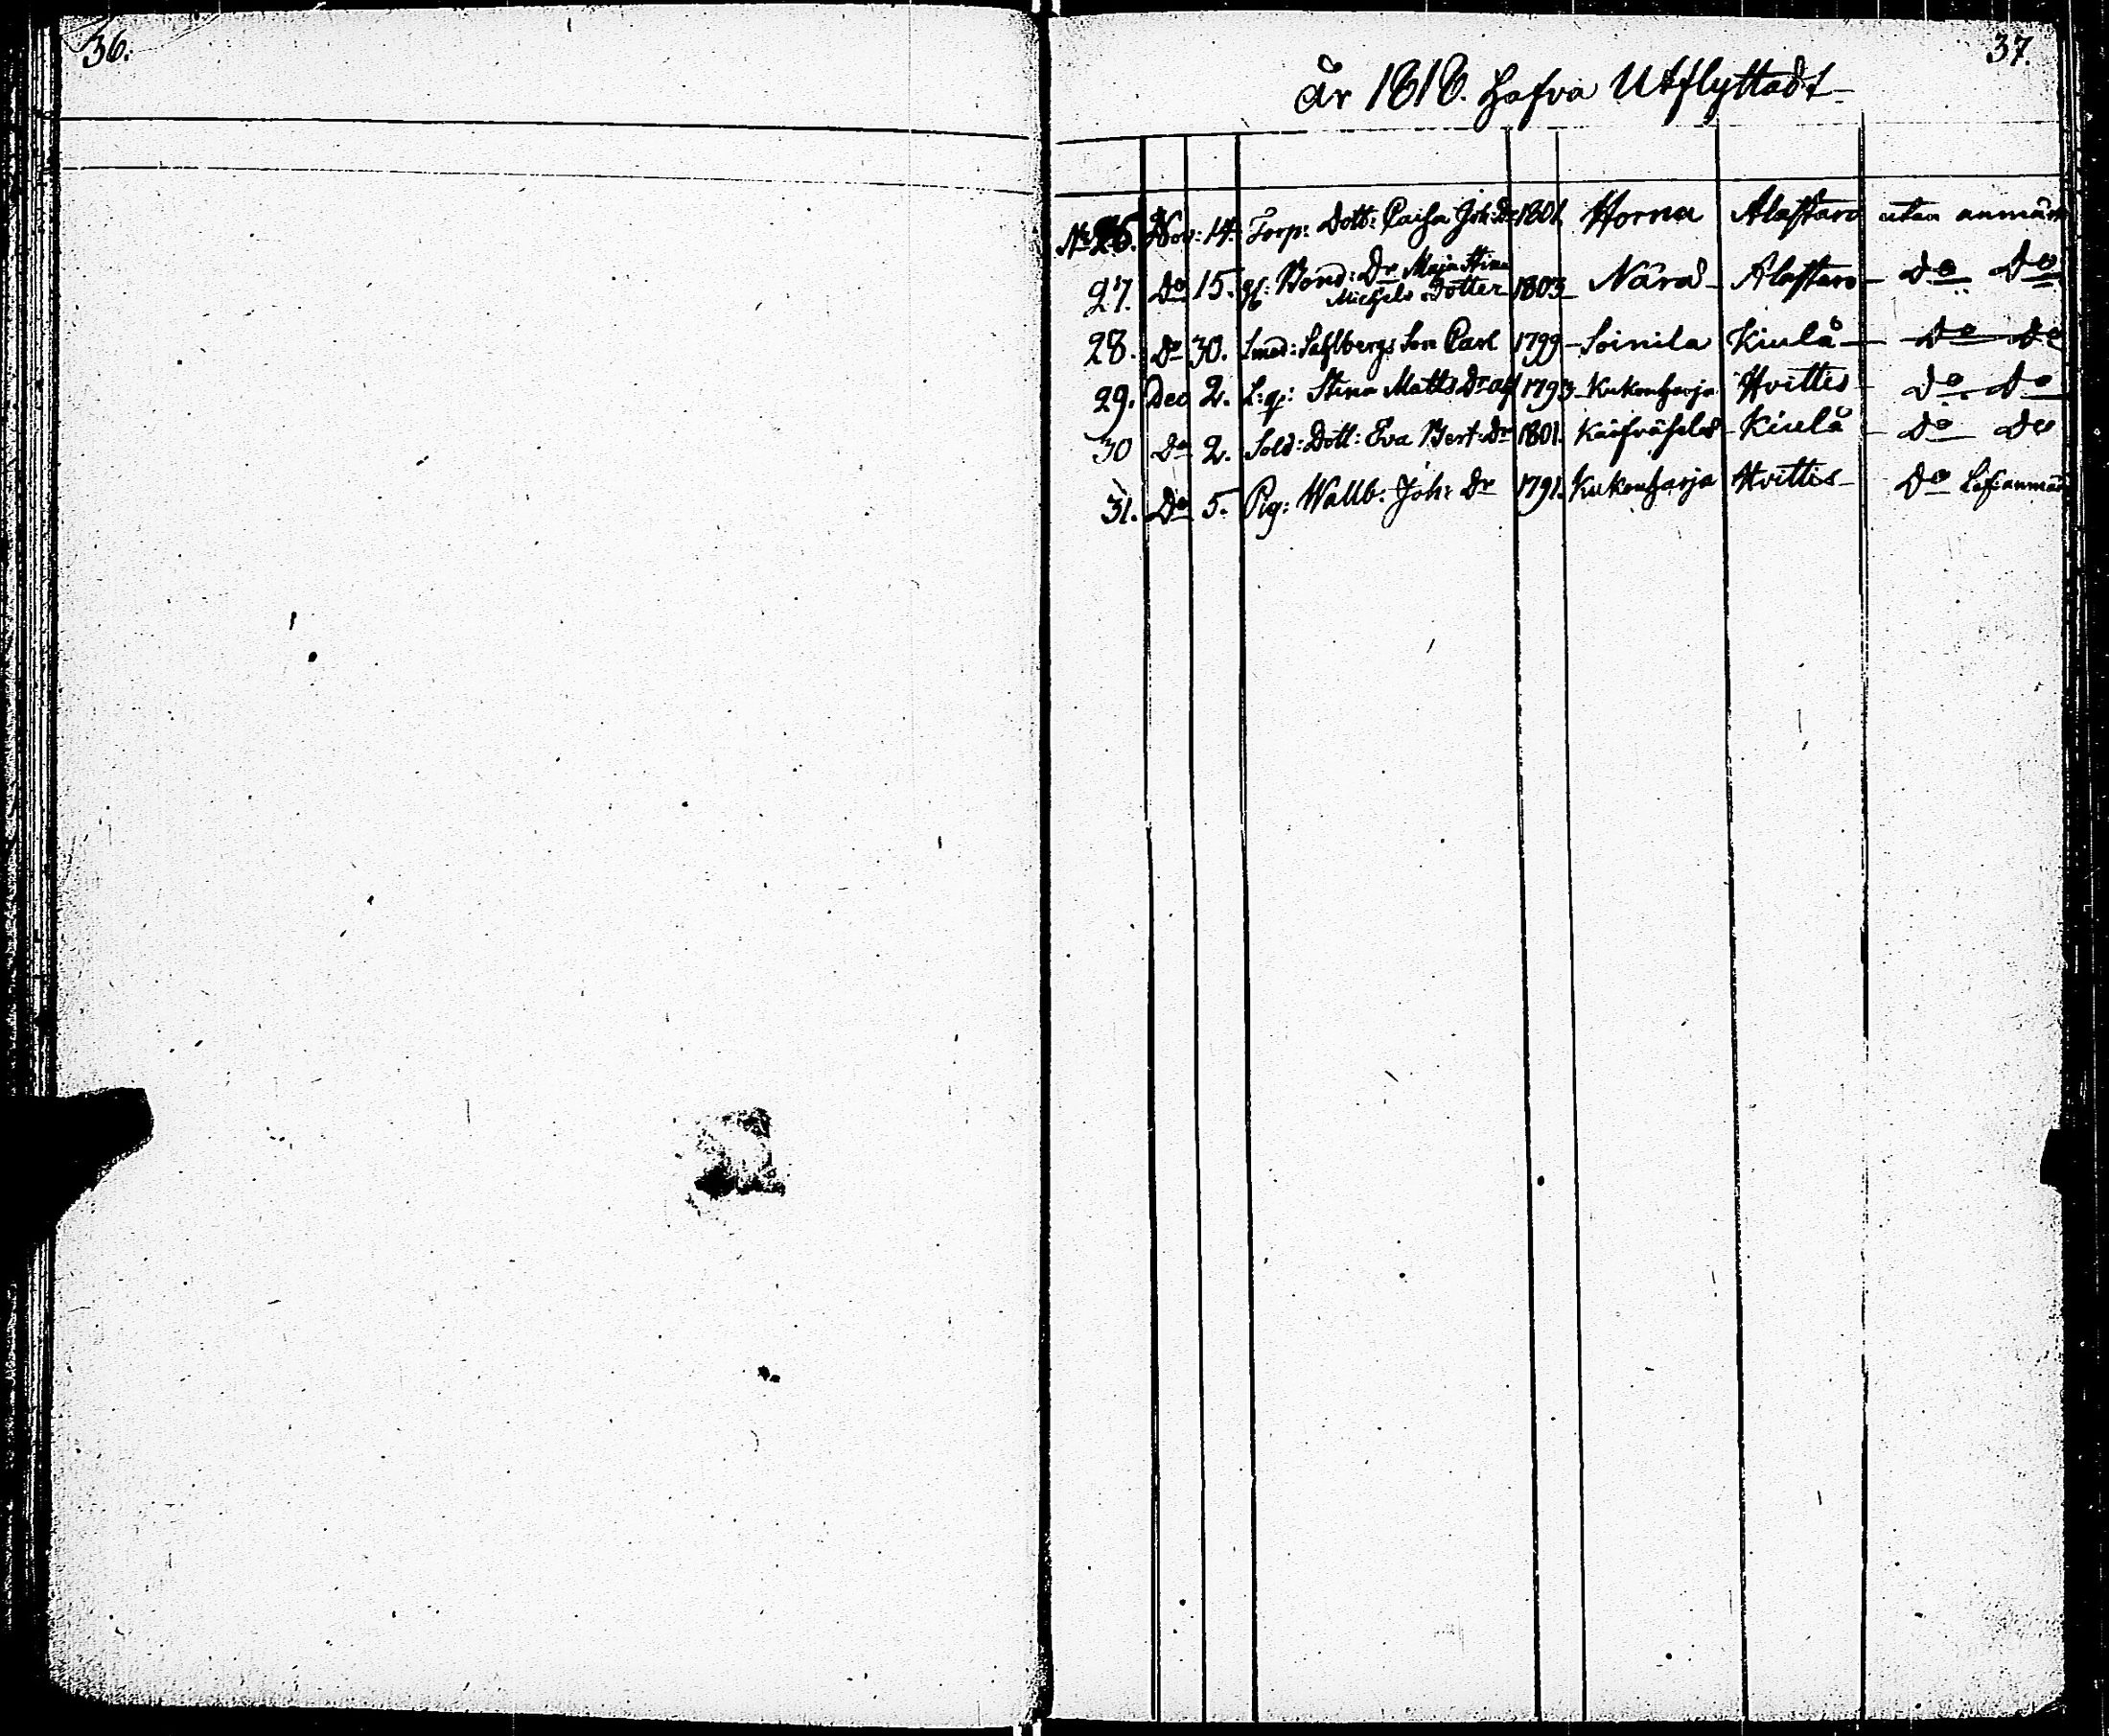 36.
37.
År 1818. hafva Utflyttadt
No 26. Nov: 14. Torp: Dott: Caisa Joh: Dr 1801. Horna Alastaro utan anmärk
27. Do 15. Bond: Dr Maja Stina Michels Dotter 1803 Närä Alastaro Do Do
28. Do 30. Smed: Sahlbergs Son Carl 1799 Soinila Kiulå Do Do
29. Dec 2. Stina Matts Dr 1793 Kukonharja Hvittis Do Do
30 Do 2. Sold: Dott: Eva Bert: Dr 1801. Kiulå Do Do
31. Do 5. Pig: Wallb. Joh: Dr 1791. Kukonharja Hvittis Do